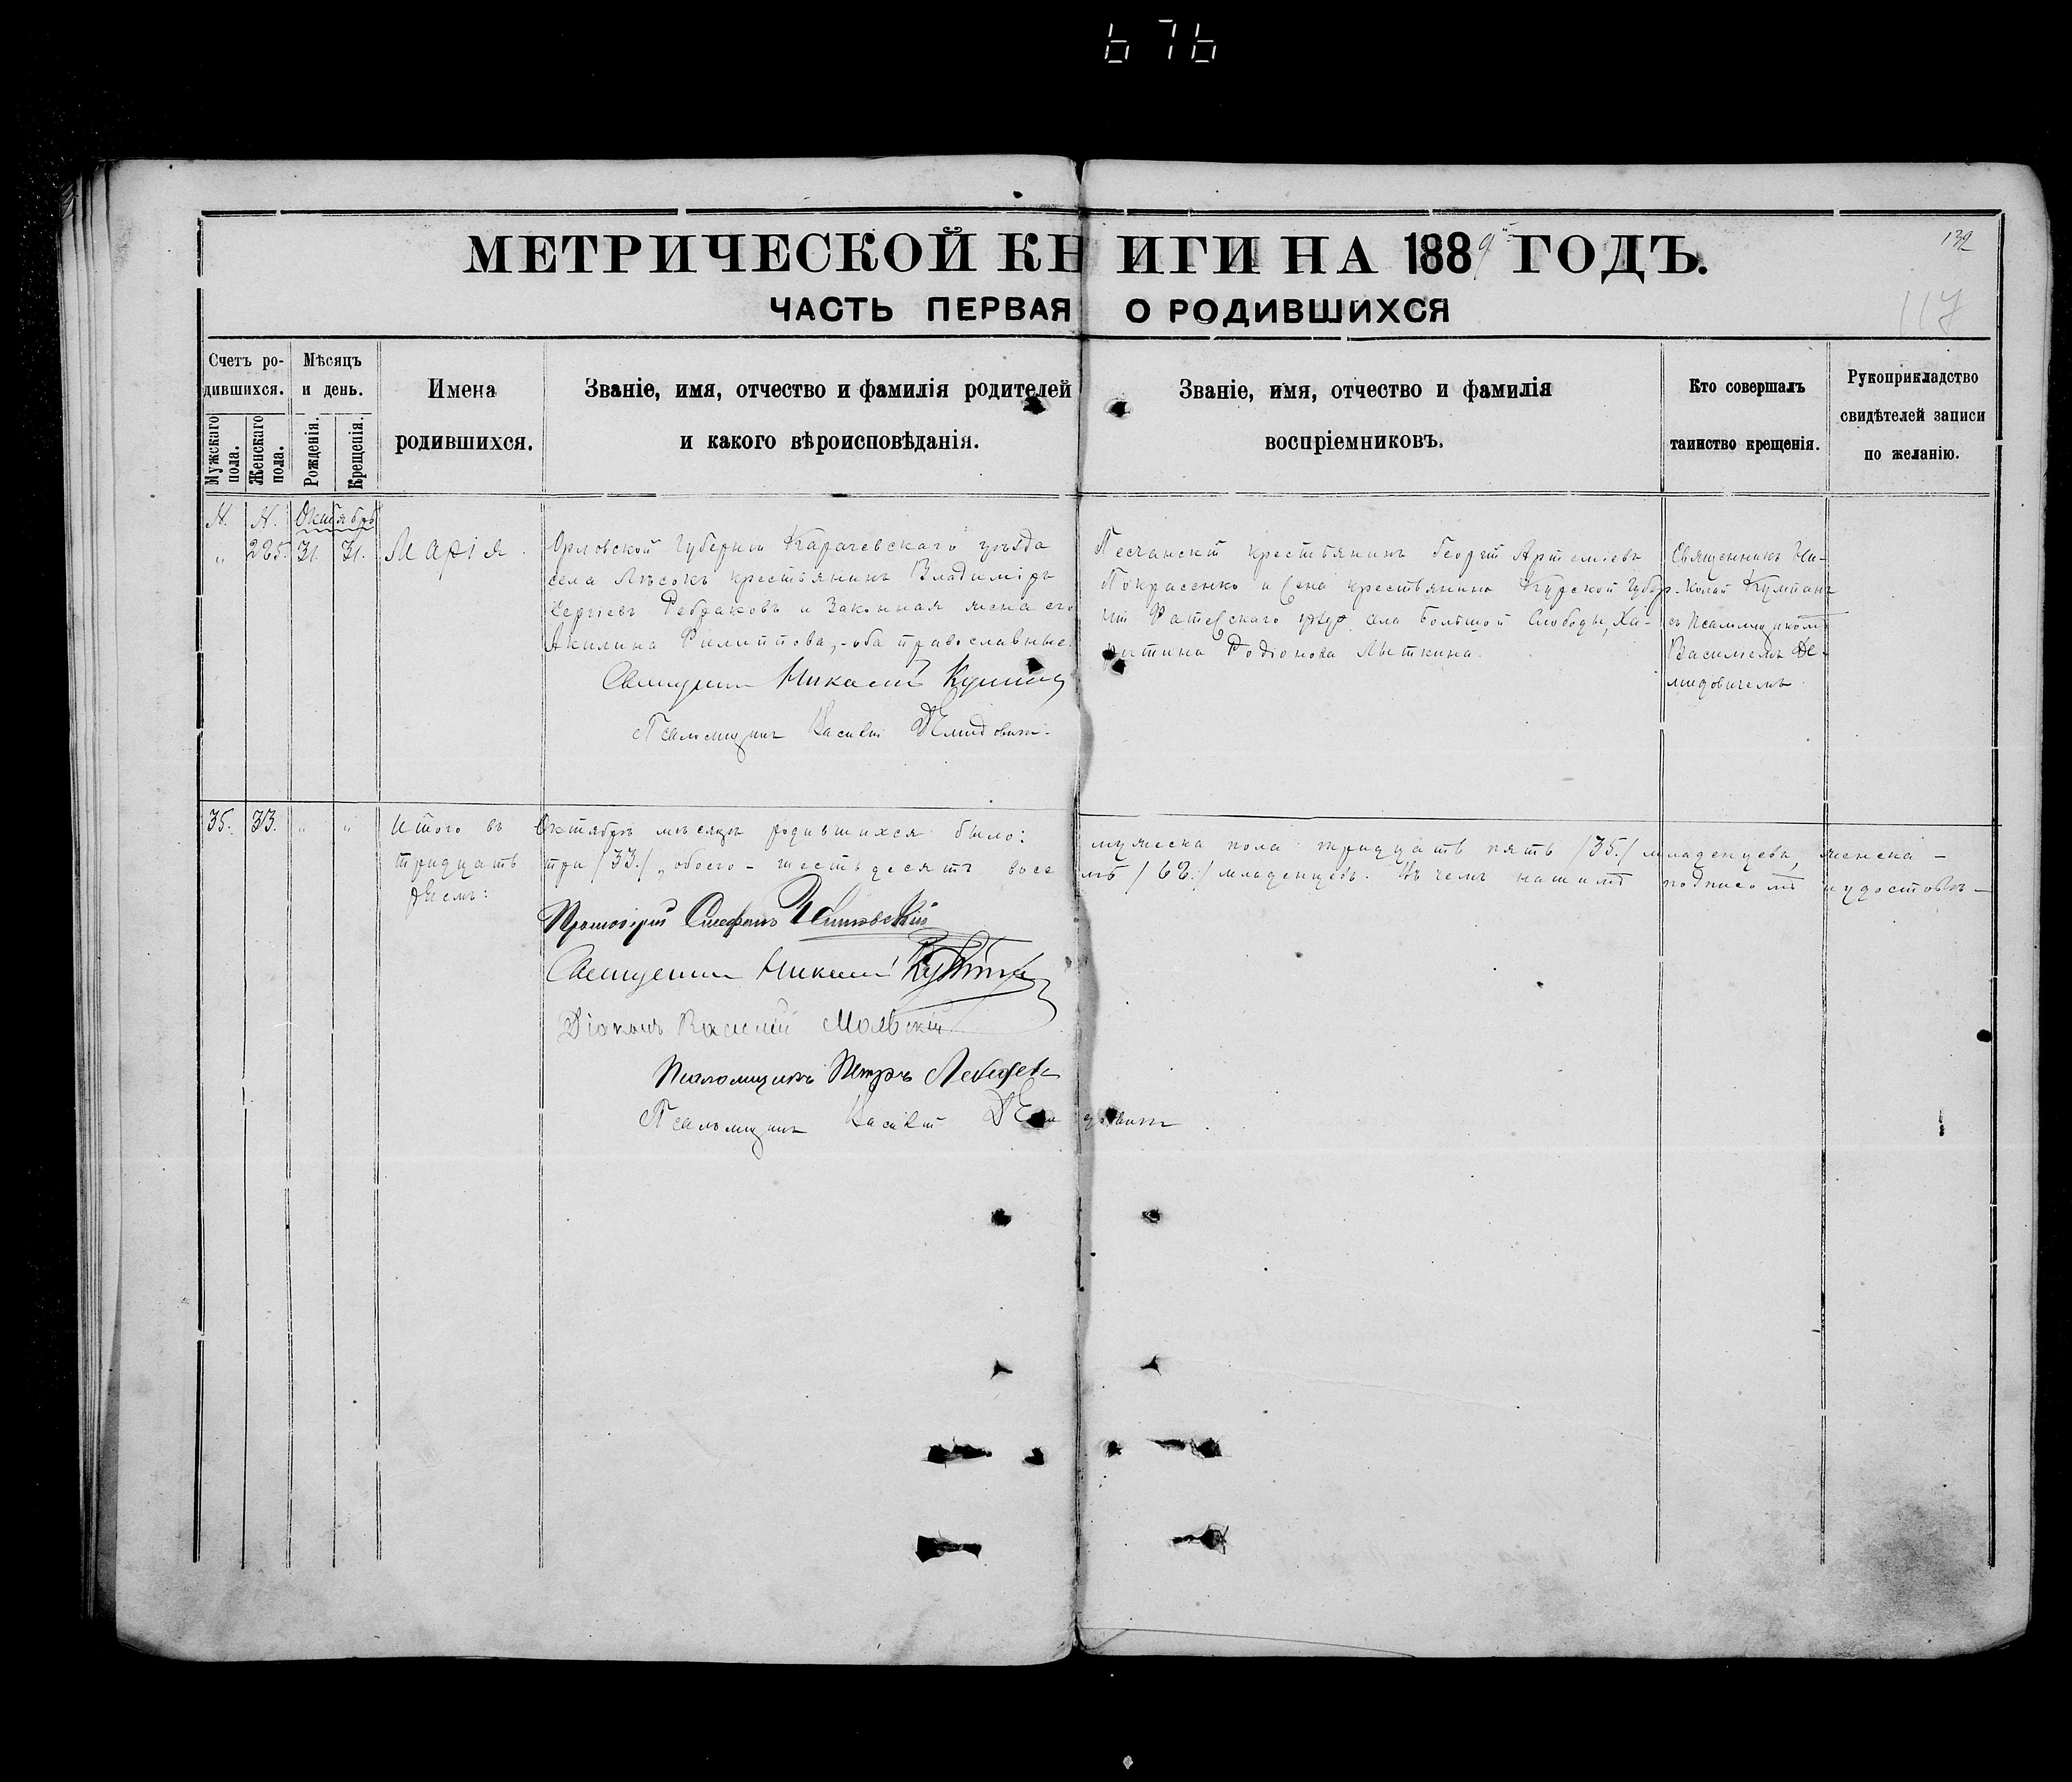 676
МЕТРИЧЕСКОЙ КНИГИ НА 1889 ГОДЪ.
139
ЧАСТЬ ПЕРВАЯ О РОДИВШИХСЯ
117
Счетъ ро-
дившихся.
Мужскаго пола.
Женскаго пола.
Мѣсяцъ
и день.
Рожденія.
Крещенія.
Имена
родившихся.
Званіе, имя, отчество и фамилія родителей
и какого вѣроисповѣданія.
Званіе, имя, отчество и фамилія
воспріемниковъ.
Кто совершалъ
таинство крещенія.
Рукоприкладство
свидѣтелей записи
по желанію.
№. №. Октябрь
„ 225. 31. 31. Марія.
Орловской Губерніи Карачевскаго уѣзда
села Лѣсокъ крестьянинъ Владиміръ
Сергіевъ Ребраковъ и Законная жена его
Акилина Филиппова, оба православные.
Священникъ Николай
Псаломщикъ Василій Демидовичъ.
Песчанскій крестьянинъ Георгій Артеміевъ
Покрасенко и крестьянина Курской Губер-
ніи Фатежскаго села Большой Слободы, Ха-
ритина Родіонова Лыткина.
Священникъ Ни-
колай Кумпанъ
съ псаломщикомъ
Василіемъ Де-
мидовичемъ.
35. 33. „ „ Итого въ Октябрѣ мѣсяцѣ родившихся было: мужеска пола тридцать пять /35./ младенцевъ, женска –
тридцать три /33./, обоего – шестьдесятъ восемь /68./ младенцевъ. Въ чемъ нашимъ подписомъ и удостовѣ–
ряемъ:
Протоіерей Стефанъ
Священникъ Николай
Діаконъ Василій
Псаломщикъ Петръ Лебедевъ
Псаломщикъ Василій Демидовичъ.